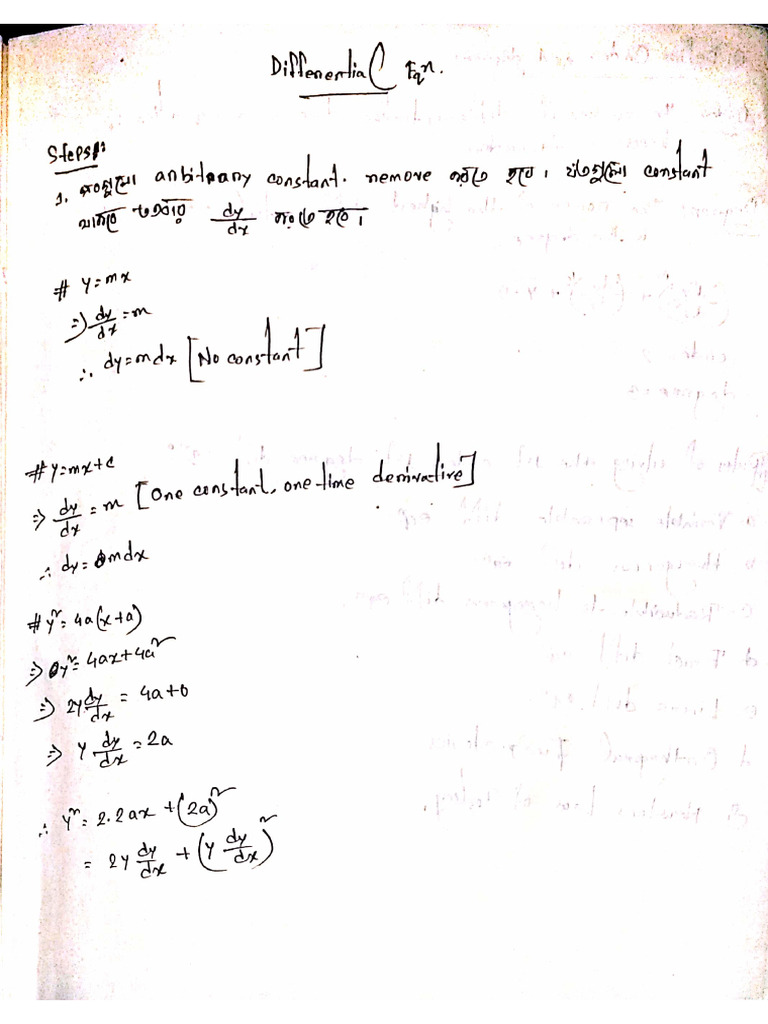 Differential Eqn.
Steps:
1. সবগুলো arbitrary constant remove করতে হবে। যতগুলো constant
থাকবে ততবার dy/dx করতে হবে।
# y=mx
⇒ dy/dx = m
∴ dy=mdx [No constant]
# y=mx+c
⇒ dy/dx = m [One constant, one-time derivative]
∴ dy = mdx
# y² = 4a(x+a)
⇒ y² = 4ax+4a²
⇒ 2y dy/dx = 4a+0
⇒ y dy/dx = 2a
∴ y² = 2.2ax + (2a)²
= 2y dy/dx + (y dy/dx)²